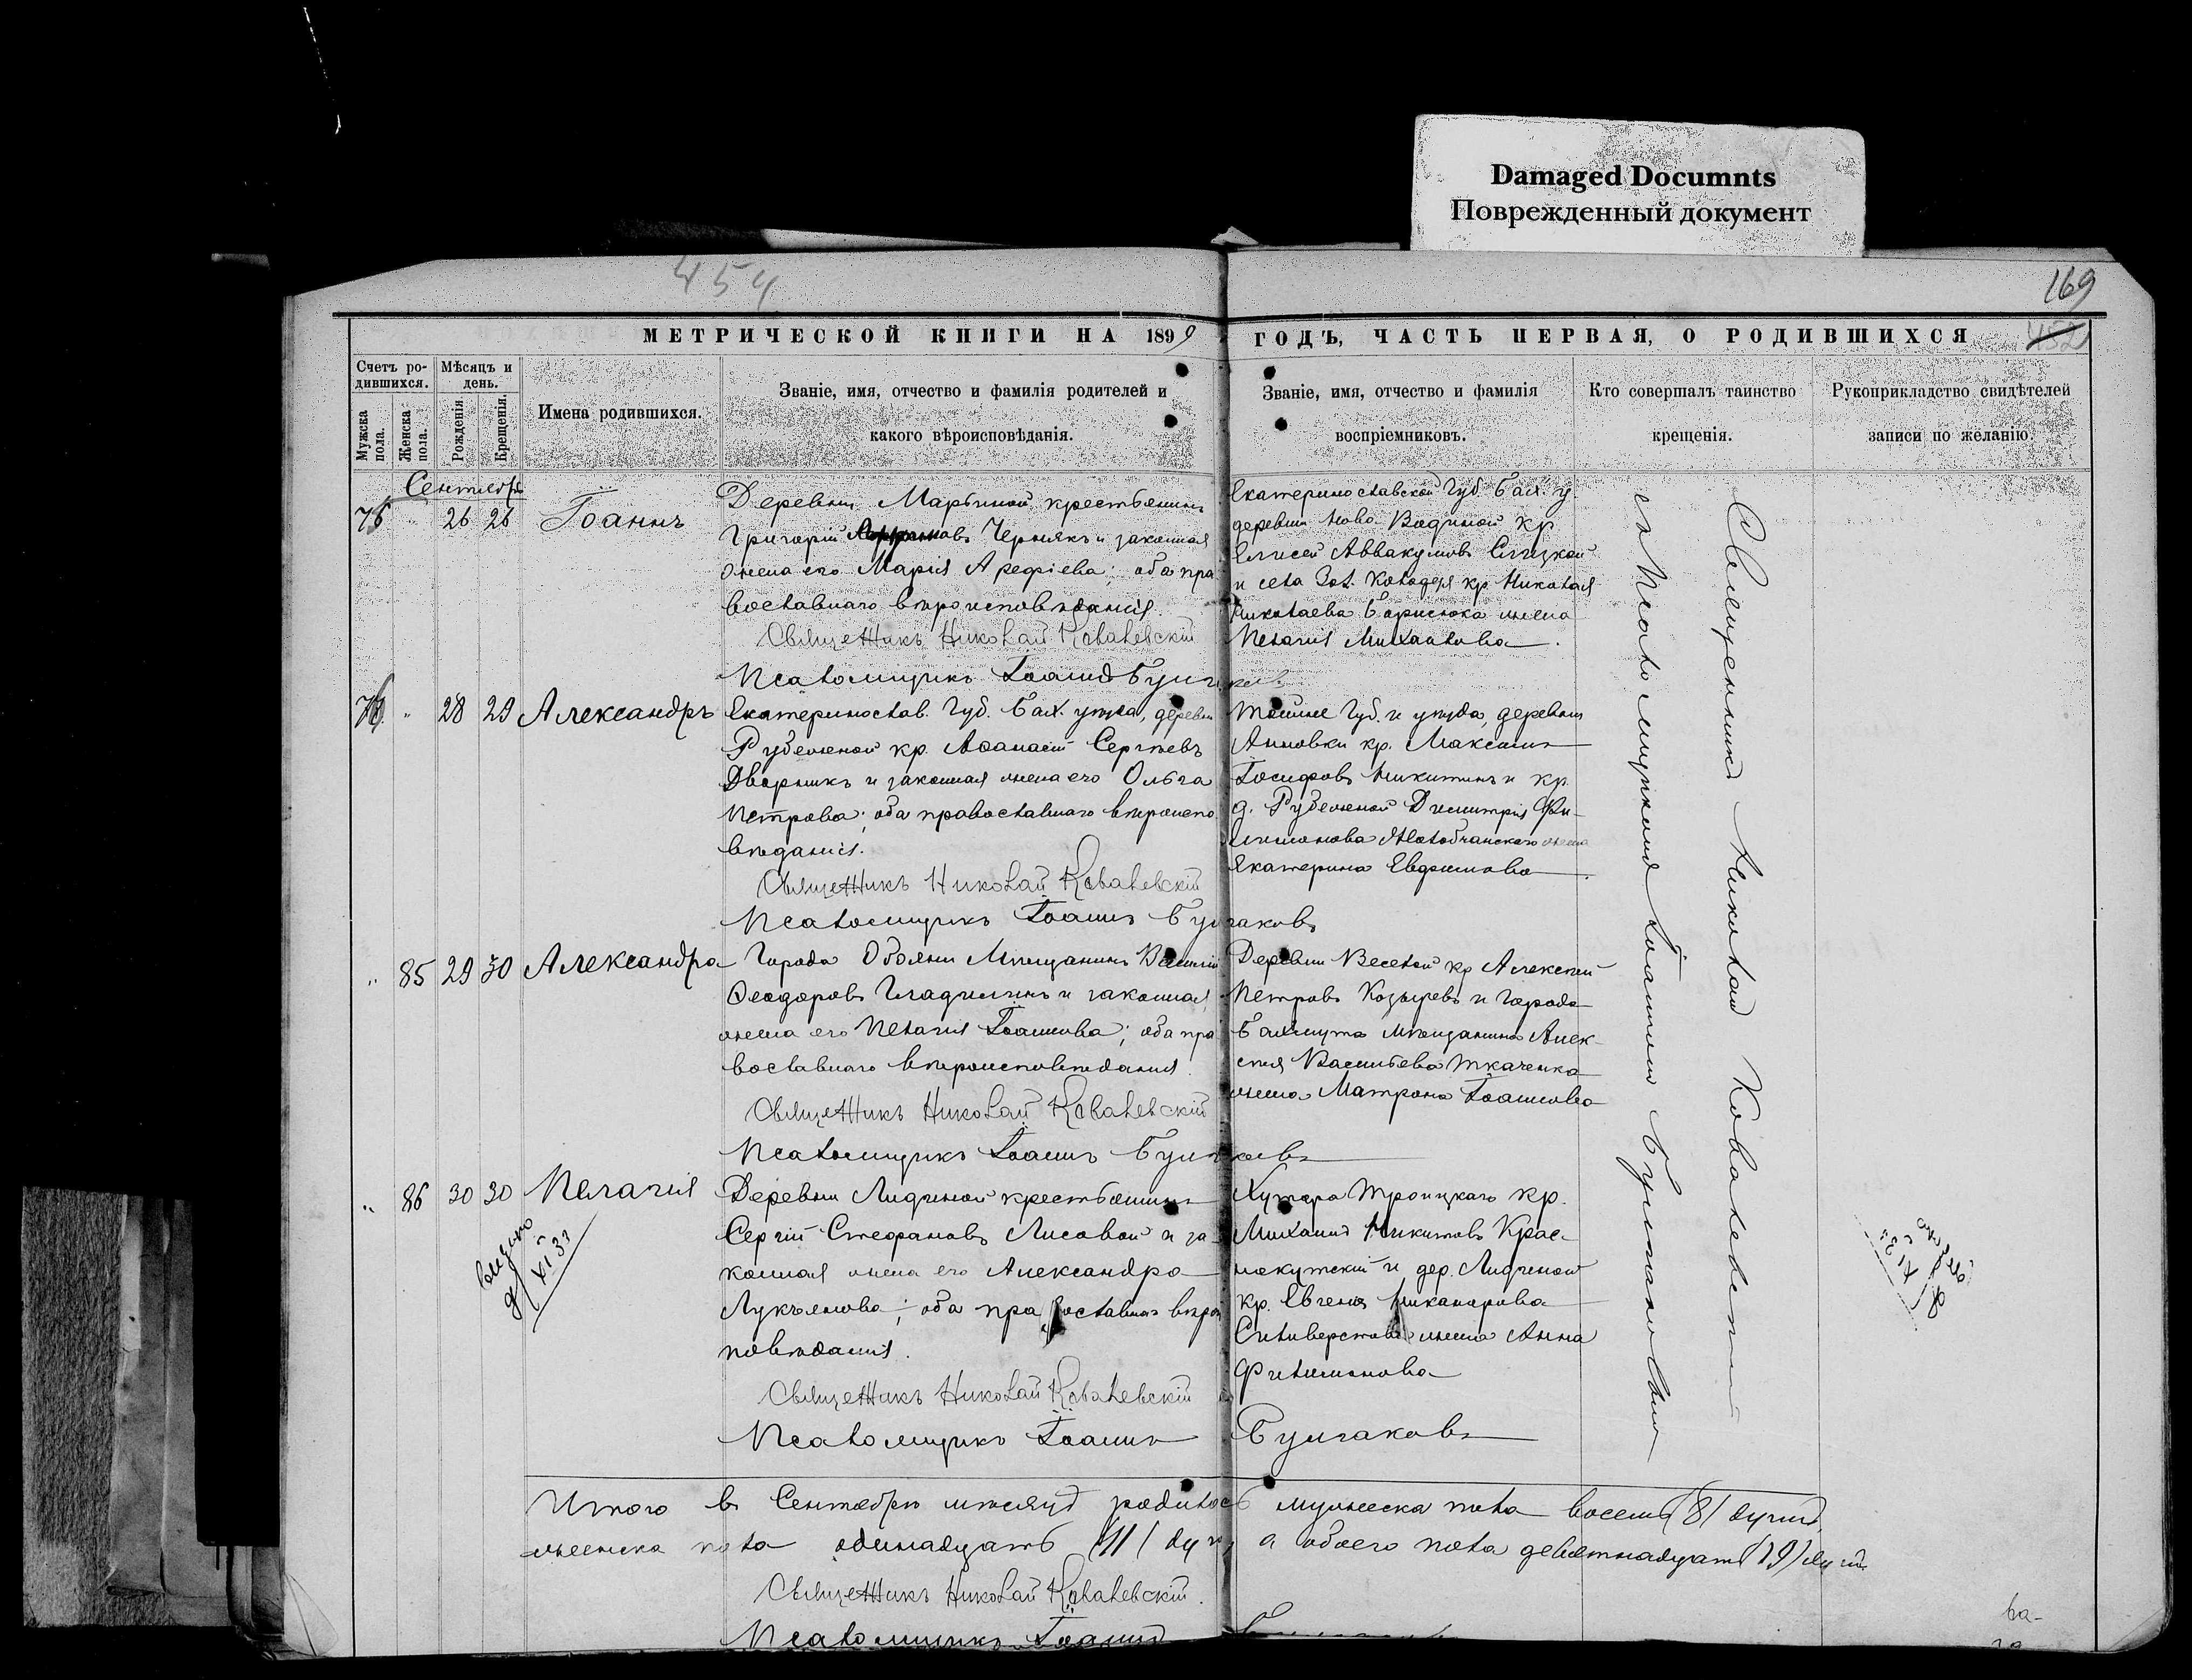 Damaged Documnts
Поврежденный документ
454
169
МЕТРИЧЕСКОЙ КНИГИ НА 1899 ГОДЪ, ЧАСТЬ ПЕРВАЯ, О РОДИВШИХСЯ
452
Счетъ родившихся.
Мужска пола.
Женска пола.
Мѣсяцъ и день.
Рожденія.
Крещенія.
Имена родившихся.
Званіе, имя, отчество и фамилія родителей и
какого вѣроисповѣданія.
Званіе, имя, отчество и фамилія
воспріемниковъ.
Кто совершалъ таинство
крещенія.
Рукоприкладство свидѣтелей
записи по желанію.
Сентябрь
26 26 Іоаннъ
Деревни Марьиной крестьянинъ
Григорій Чернякъ и законная
жена его Марія Арефіева; оба пра
вославнаго вѣроисповѣданія.
Священникъ Николай Ковалевскій
Псаломщикъ Іоаннъ Булгаковъ
Екатеринославской Губ. Бах. у.
деревни Ново
Елисей Аввакумовъ Слизкой
и села Зол. Колодезя кр. Николая
Николаева Борисюка жена
Пелагія Михайлова
28 29 Александръ
Екатеринослав. Губ. Бах. уѣзда, деревни
Рубежной кр. Аѳанасій Сергѣевъ
Дворникъ и законная жена его Ольга
Петрова; оба православнаго вѣроиспо
вѣданія.
Священникъ Николай Ковалевскій
Псаломщикъ Іоаннъ Булгаковъ
Тойже Губ. и уѣзда, деревни
Анновки кр. Максимъ
Іосифовъ Никитинъ и кр.
д. Рубежной Димитрія Фи-
лимонова жена
Екатерина Евфимова
" 85 29 30 Александра
Города Обояни Мѣщанинъ Василій
Ѳеодоровъ Гладилинъ и законная
жена его Пелагія Іоаннова; оба пра
вославнаго вѣроисповѣданія.
Священникъ Николай Ковалевскій
Псаломщикъ Іоаннъ Булгаковъ
Деревни Веселой кр Алексѣй
Петровъ Козыревъ и города
Бахмута мѣщанина Алек-
сѣя Васильева Ткаченка
жена Матрона Іоаннова
" 86 30 30 Пелагія
Деревни Лидиной крестьянинъ
Сергій Стефановъ Лисовой и за
конная жена его Александра
Лукьянова; оба православнаго вѣрои
повѣданія.
Священникъ Николай Ковалевскій
Псаломщикъ Іоаннъ Булгаковъ
Хутора Троицкаго кр.
Михаилъ Никитовъ Крас-
нокутскій и дер. Лидиной
кр. Евгенія Никанорова
Силиверстова жена Анна
Филимонова
Священникъ Николай Ковалевскій
съ Псаломщикомъ Іоанномъ Булгаковымъ
видано
XI 33
Итого въ Сентябрѣ мѣсяцѣ родилось мужеска пола восемь (8) душъ,
женска пола одинадцать (11) душъ, а обоего пола девятнадцать (19) душъ.
Священникъ Николай Ковалевскій.
Псаломщикъ Іоаннъ